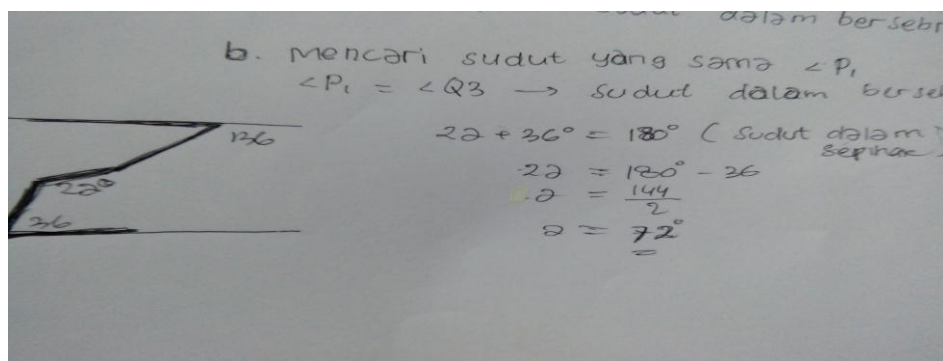 dalam bersebr
b. Mencari sudut yang sama <P1
<P1 = <Q3 → sudut dalam berse
136
2a + 36° = 180° ( sudut dalam
sepihak
2a°
2a = 180° - 36
a = 144/2
36
a = 72°